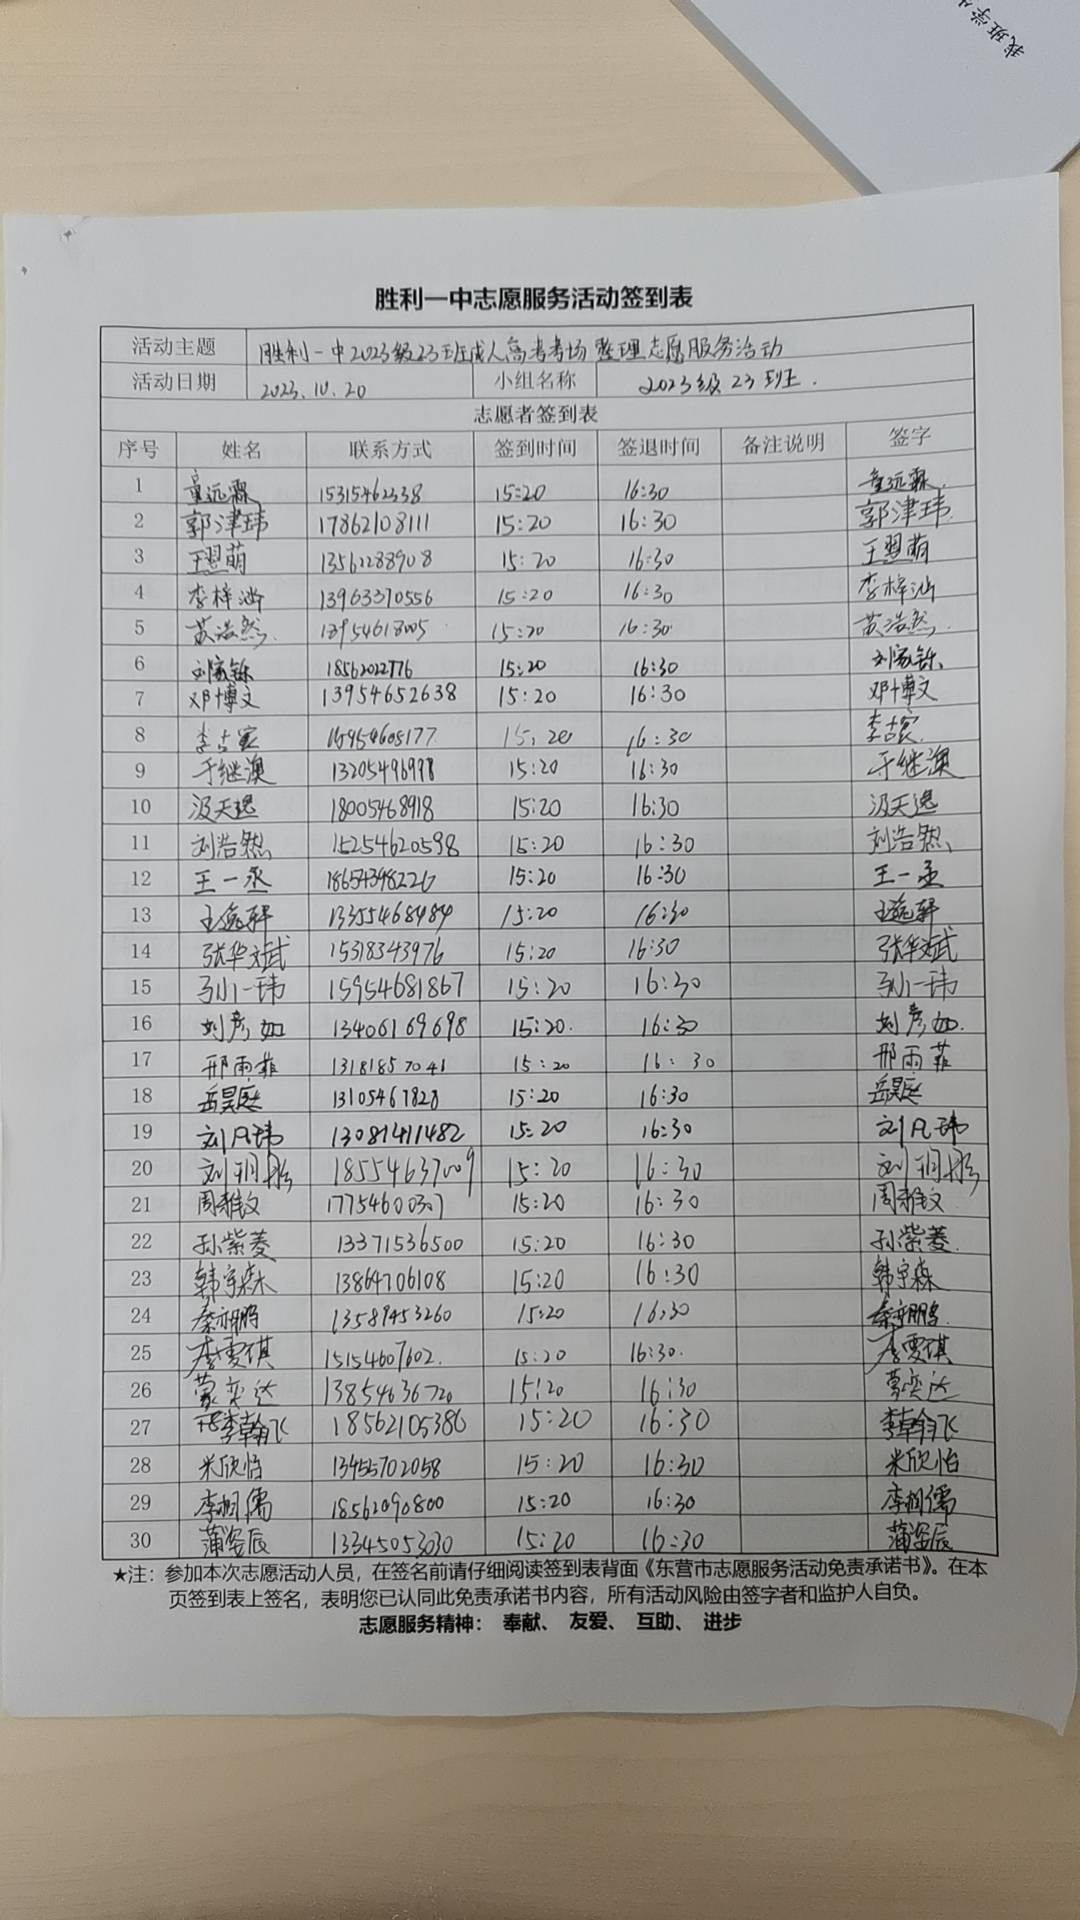 我班学生
胜利一中志愿服务活动签到表
活动主题 胜利一中2023级23班成人高考考场整理志愿服务活动
活动日期 2023.10.20 小组名称 2023级23班.
志愿者签到表
序号 姓名 联系方式 签到时间 签退时间 备注说明 签字
1 童远霖 15315462338 15:20 16:30 童远霖
2 郭津玮 17862108111 15:20 16:30 郭津玮
3 王翌萌 13561288908 15:20 16:30 王翌萌
4 李梓汕 13963370556 15:20 16:30 李梓汕
5 苏浩然 15:20 16:30 苏浩然
6 刘家铄 18562022776 15:20 16:30 刘家铄
7 邓博文 13954652638 15:20 16:30 邓博文
8 15:20 16:30
9 于继澳 15:20 16:30 于继澳
10 汲天逸 18005468918 15:20 16:30 汲天逸
11 刘浩然 15254620598 15:20 16:30 刘浩然
12 王一丞 18654398226 15:20 16:30 王一丞
13 王逸轩 13355468484 15:20 16:30 王逸轩
14 张华斌 15318343976 15:20 16:30 张华斌
15 孙一玮 15954681867 15:20 16:30 孙一玮
16 刘彦如 13406169698 15:20. 16:30 刘彦如.
17 邢雨菲 13181857041 15:20 16:30 邢雨菲
18 岳昊庭 13105467828 15:20 16:30 岳昊庭
19 刘凡玮 13081411482 15:20 16:30 刘凡玮
20 18554637009 15:20 16:30
21 周雅文 17754600307 15:20 16:30 周雅文
22 孙紫菱 13371536500 15:20 16:30 孙紫菱.
23 韩宇森 13864706108 15:20 16:30 韩宇森
24 秦亦鹏 13589453260 15:20 16:30 秦亦鹏
25 李雯琪 15154607602. 15:20 16:30. 李雯琪
26 蒙奕达 13854636720 15:20 16:30 蒙奕达
27 李翰飞 18562105386 15:20 16:30 李翰飞
28 米欣怡 13455702058 15:20 16:30 米欣怡
29 李桐儒 18562090800 15:20 16:30 李桐儒
30 蒲姿辰 13345053030 15:20 16:30 蒲姿辰
★注：参加本次志愿活动人员，在签名前请仔细阅读签到表背面《东营市志愿服务活动免责承诺书》。在本
页签到表上签名，表明您已认同此免责承诺书内容，所有活动风险由签字者和监护人自负。
志愿服务精神： 奉献、 友爱、 互助、 进步